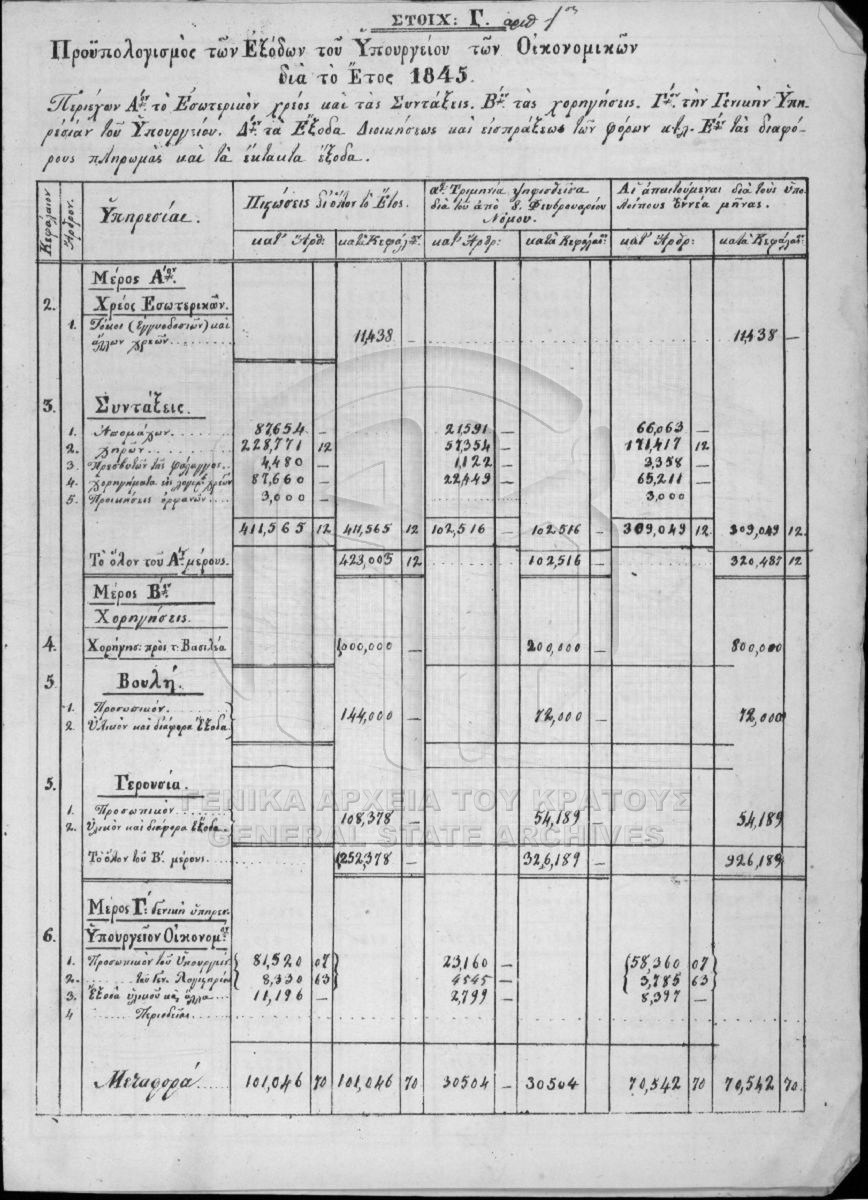 ΣΤΟΙΧ: Γ. ἀριθ 1ος
Προϋπολογισμὸς τῶν Ἐξόδων τοῦ Ὑπουργείου τῶν Οἰκονομικῶν
διὰ τὸ Ἔτος 1845.
Περιέχων Αον τὸ Ἐσωτερικὸν χρέος καὶ τὰς Συντάξεις. Βον τὰς χορηγήσεις. Γον τὴν Γενικὴν Ὑπη-
ρεσίαν τοῦ Ὑπουργείου. Δον τὰ Ἔξοδα Διοικήσεως καὶ εἰσπράξεως τῶν φόρων κτλ. Εον τὰς διαφό-
ρους πληρωμὰς καὶ τὰ ἔκτακτα ἔξοδα.
Κεφάλαιον Ἄρθρον. Ὑπηρεσίας. Πιστώσεις δι' ὅλον τὸ Ἔτος. αη Τριμηνία ψηφισθεῖσα διὰ τοῦ ἀπὸ 8. Φεβρουαρίου Νόμου. Αἱ ἀπαιτούμεναι διὰ τοὺς ὑπολοίπους ἐννέα μῆνας.
κατ' Ἄρθ: κατὰ Κεφάλ: κατ' Ἄρθρ: κατὰ Κεφάλαι: κατ' Ἄρθρ: κατὰ Κεφάλαι:
Μέρος Αον.
2. Χρέος Ἐσωτερικὸν.
1. Τόκοι (ἐγγυοδοσιῶν) καὶ
ἄλλων χρεῶν 11,438 — 11,438 —
3. Συντάξεις.
1. Ἀπομάχων. 87,654 — 21,591 — 66,063 —
2. Χηρῶν 228,771 12 57,354 — 171,417 12
3. Πρεσβυτῶν τῆς φάλαγγος. 4,480 — 1,122 — 3,358 —
4. Χορηγήματα εἰς λογαρ. χρεῶν 87,660 — 22,449 — 65,211 —
5. Προικήσεις ὀρφανῶν 3,000 — 3,000
411,565 12 411,565 12 102,516 — 102,516 — 309,049 12 309,049 12
Τὸ ὅλον τοῦ Αου μέρους. 423,003 12 102,516 — 320,487 12
Μέρος Βον
Χορηγήσεις.
4. Χορήγησ: πρὸς τ: Βασιλέα 1,000,000 — 200,000 — 800,000
5. Βουλή.
1. Προσωπικόν.
2. Ὑλικὸν καὶ διάφορα ἔξοδα 144,000 — 72,000 — 72,000
5. Γερουσία.
1. Προσωπικὸν
2. Ὑλικὸν καὶ διάφορα ἔξοδα 108,378 — 54,189 — 54,189
Τὸ ὅλον τοῦ Β. μέρους. 1,252,378 — 326,189 — 926,189
Μέρος Γ. Γενικὴ ὑπηρεσ.
6. Ὑπουργεῖον Οἰκονομ:
1. Προσωπικὸν τοῦ Ὑπουργείου 81,520 07 23,160 — 58,360 07
2. τοῦ Γεν. Λογιστηρίου 8,330 63 4545 — 3,785 63
3. Ἔξοδα ὑλικοῦ κ ἄλλα 11,196 — 2,799 — 8,397 —
4 Περιοδείας
Μεταφορά 101,046 70 101,046 70 30504 — 30504 — 70,542 70 70,542 70.
ΓΕΝΙΚΑ ΑΡΧΕΙΑ ΤΟΥ ΚΡΑΤΟΥΣ
GENERAL STATE ARCHIVES